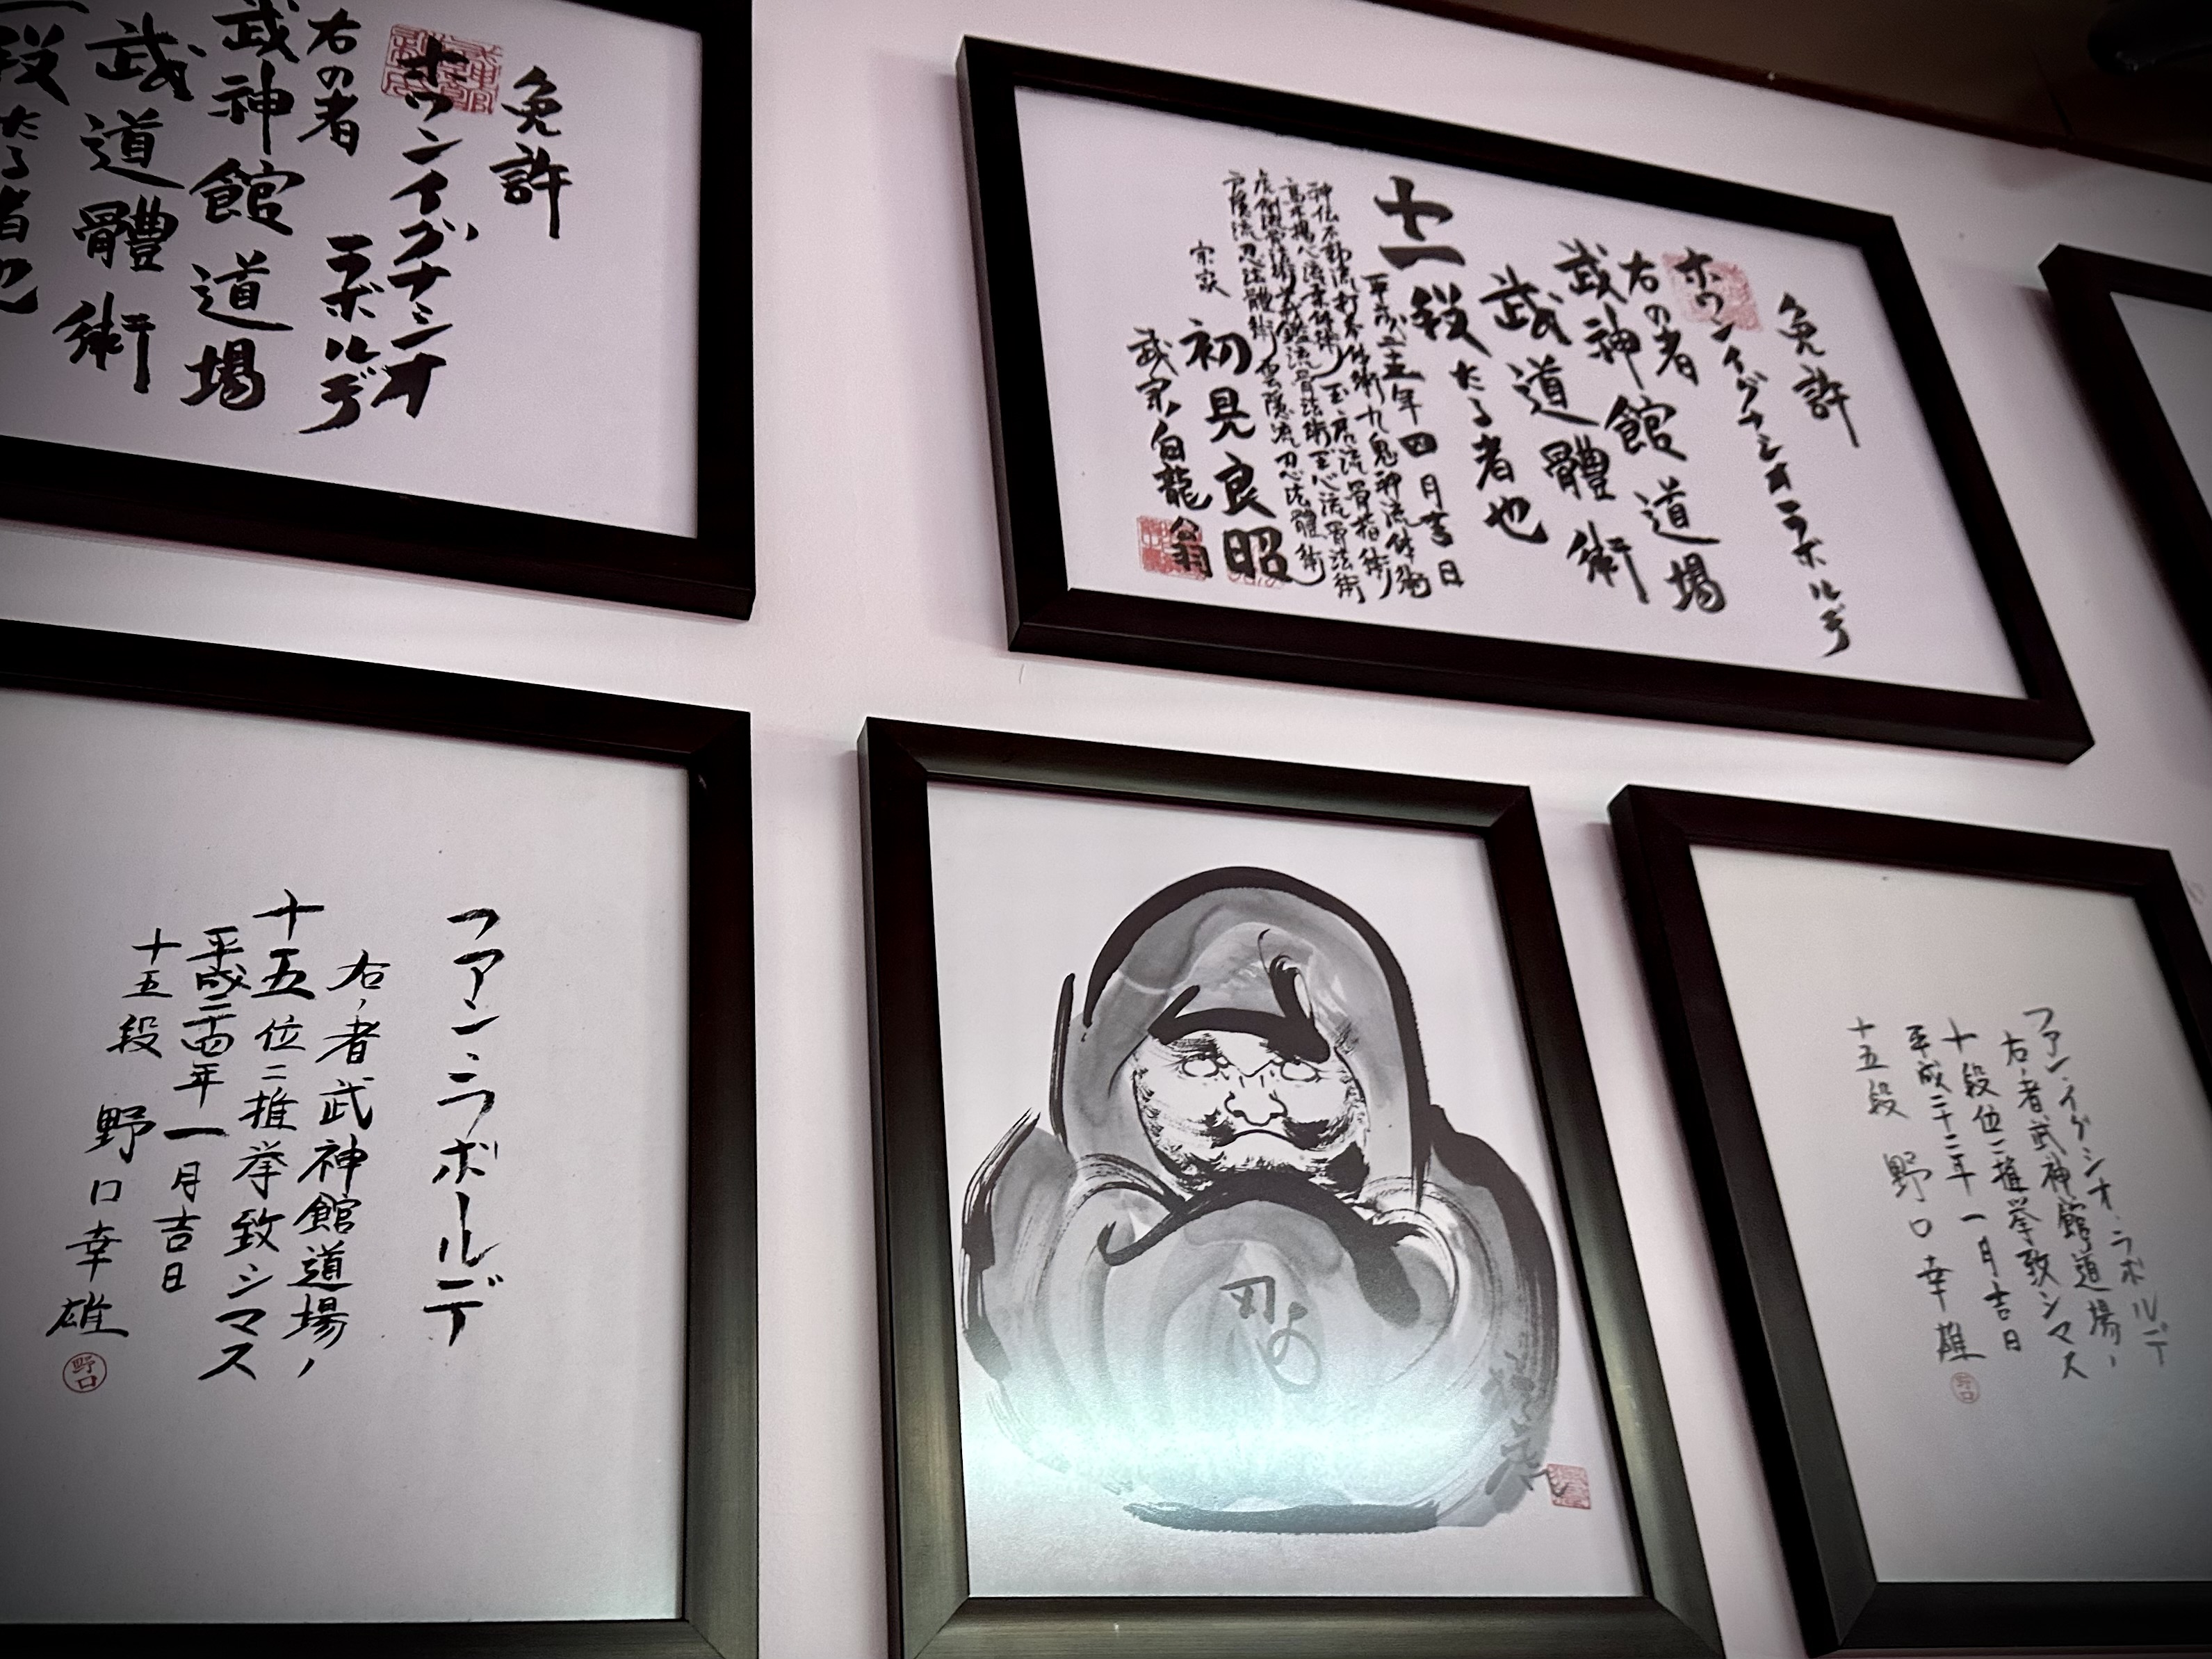 免許
ホワンイグナシオ
ラボルデ
右の者
武神館道場
武道體術
段たる者也
免許
ホワンイグナシオラボルデ
右の者
武神館道場
武道體術
十一段たる者也
平成二十五年四月吉日
神伝不動流打拳体術 九鬼神流体術
高木揚心流柔体術 玉虎流骨指術
虎倒流骨法術 義鑑流骨法術 玉心流骨法術
戸隠流忍法體術 雲隠流忍法體術
宗家
初見良昭
武宗白龍翁
フアン・ラボールデ
右ノ者武神館道場ノ
十五位ニ推挙致シマス
平成二十四年一月吉日
十五段 野口幸雄
野口
忍
フアン・イグシオ・ラボルデ
右ノ者武神館道場ノ
十段位ニ推挙致シマス
平成二十二年一月吉日
十五段 野口幸雄
野口